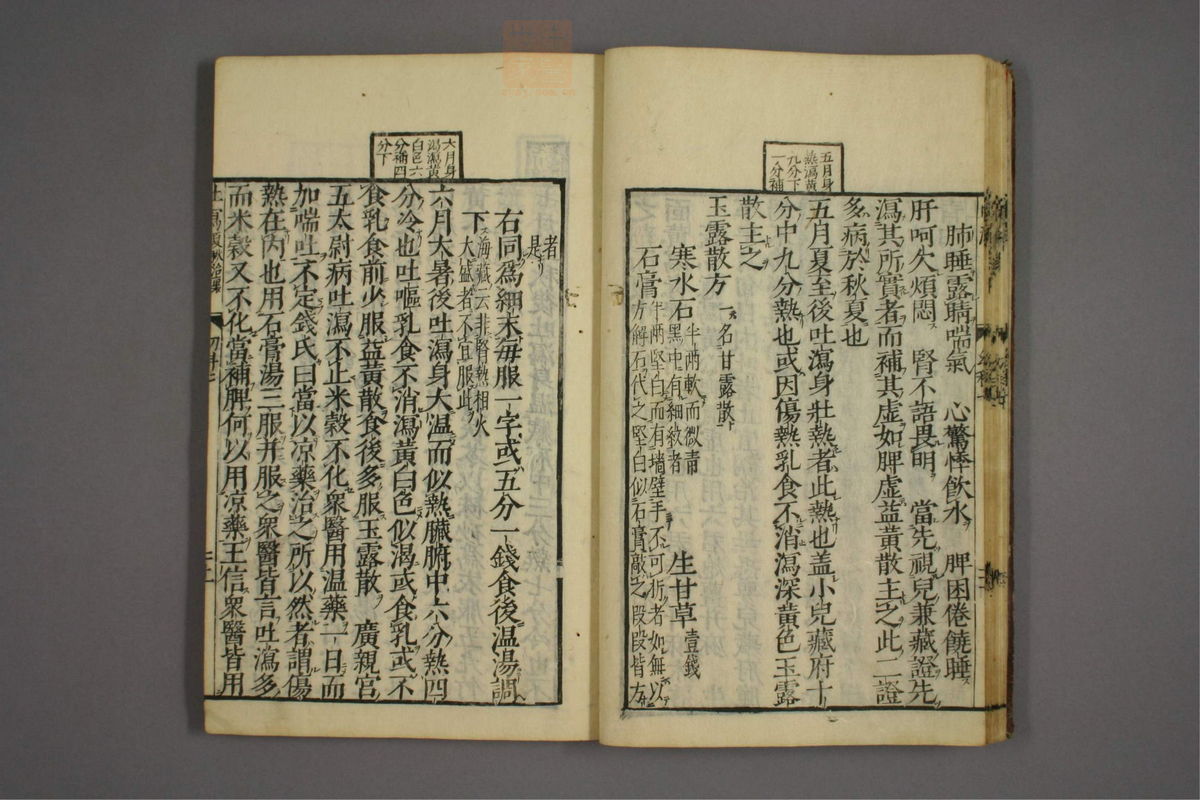 五月身
熱瀉黃
九分下
一分補
肺睡露睛喘氣　心驚悸飲水　脾困倦饒睡
肝呵欠煩悶　腎不語畏明　當先視兒兼藏證先
瀉其所實者而補其虚如脾虚益黃散主之此二證
多病於秋夏也
五月夏至後吐瀉身壯熱者此熱也盖小兒藏府十
分中九分熱也或因傷熱乳食不消瀉深黃色玉露
散主之
玉露散方　一名甘露散
寒水石　半兩軟而微青
黑中有細紋者　生甘草　壹錢
石膏　半兩堅白而有墻壁手不可折者如無以
方解石代之堅白似石膏敲之段段皆方
六月身
溫瀉黃
白色六
分補四
分下
者
是
右同爲細末每服一字或五分一錢食後温湯調
下　海藏云非腎熱相火
大盛者不宜服此
六月大暑後吐瀉身大温而似熱臟腑中六分熱四
分冷也吐嘔乳食不消瀉黃白色似渴或食乳或不
食乳食前少服益黃散食後多服玉露散　廣親宮
五太尉病吐瀉不止米穀不化衆醫用温藥一日而
加喘吐不定錢氏曰當以凉藥治之所以然者謂傷
熱在內也用石膏湯三服并服之衆醫皆言吐瀉多
而米穀又不化當補脾何以用凉藥王信衆醫皆用